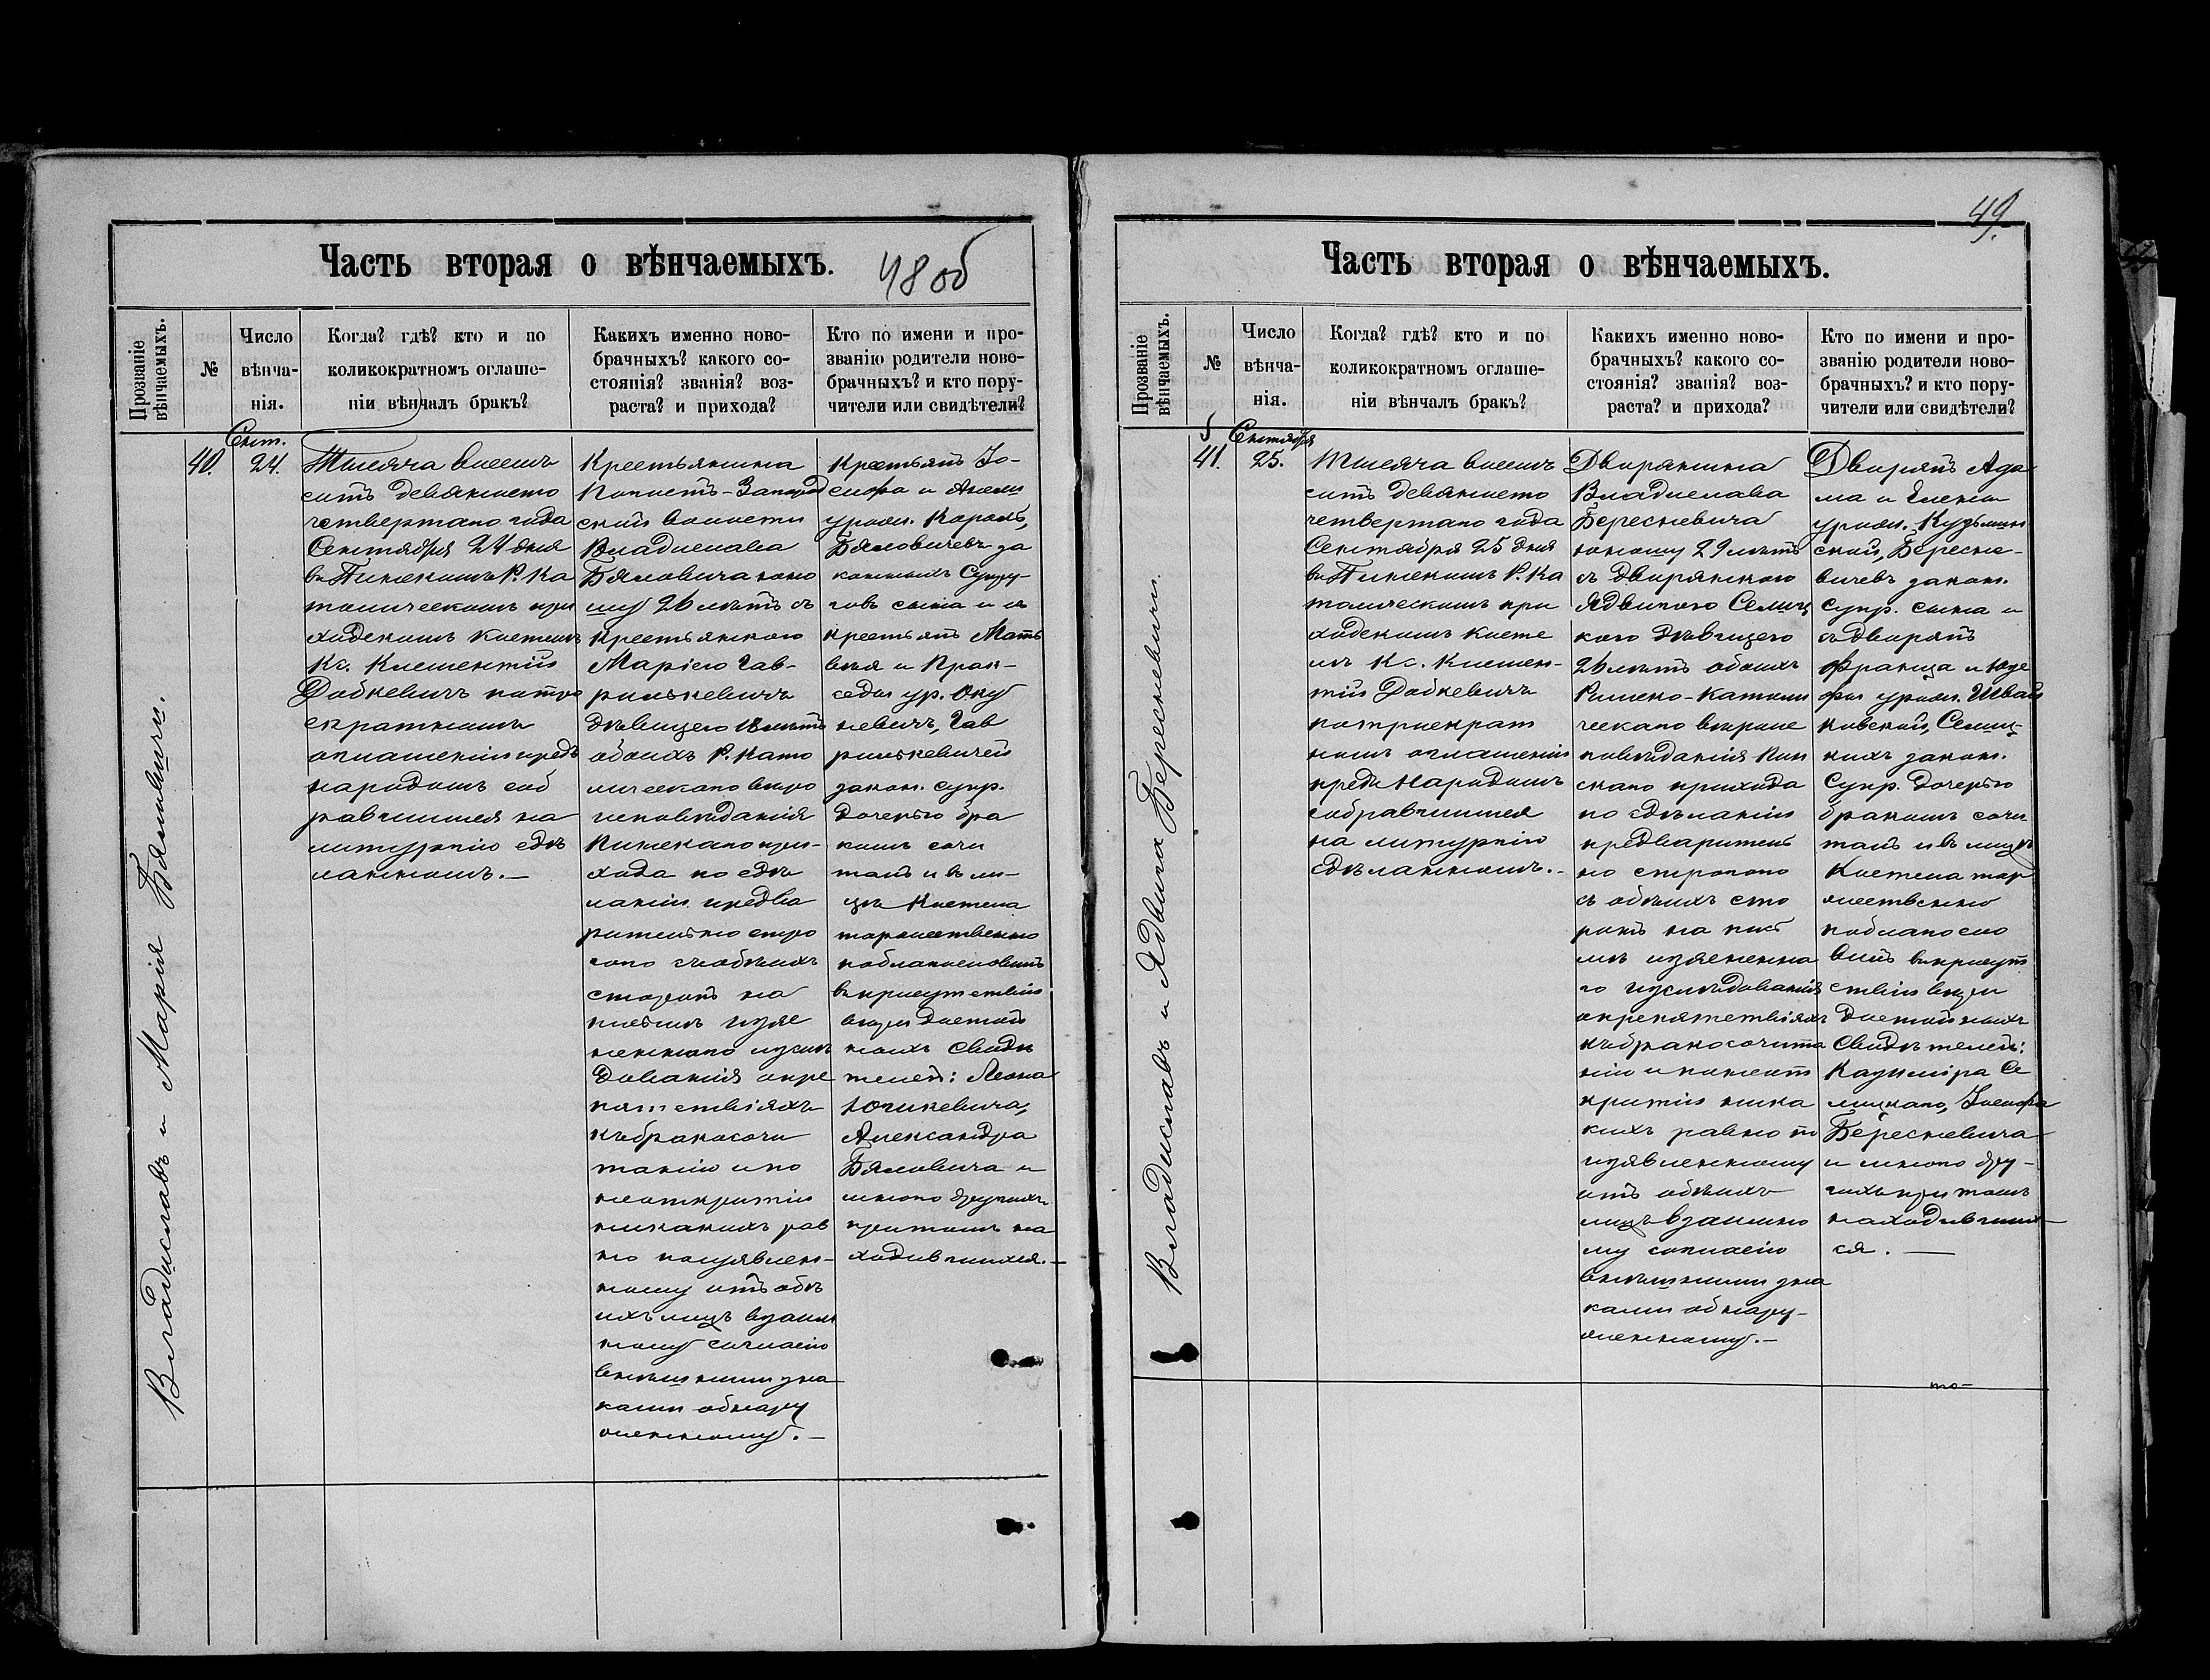 Часть вторая о вѣнчаемыхъ.
48 об
Прозваніе
вѣнчаемыхъ.
№
Число
вѣнча-
нія.
Когда? гдѣ? кто и по
коликократномъ оглаше-
ніи вѣнчалъ бракъ?
Какихъ именно ново-
брачныхъ? какого со-
стоянія? званія? воз-
раста? и прихода?
Кто по имени и про-
званію родители ново-
брачныхъ? и кто пору-
чители или свидѣтели?
Владиславъ и Марія Бяловичи.
40.
Сент.
24.
Тысяча восемь
сотъ девяносто
четвертаго года
Сентября 24 дня
въ Пинскомъ Р. Ка
толическомъ при
ходскомъ костелѣ
Кс. Клементій
Добкевичъ по трое
кратномъ
оглашеніи предъ
народомъ соб
равшимся на
литургію сдѣ
ланномъ.—
Крестьянина
Погостъ-Загород
ской волости
Владислава
Бяловича юно
шу 26 лѣтъ съ
крестьянкою
Маріею Гав-
рилькевичъ
дѣвицею 18 лѣтъ
обоихъ Р. Като
лическаго вѣро
исповѣданія
Пинскаго при-
хода по сдѣ
ланіи предва
рительно стро
гого съ обѣихъ
сторонъ на
письмѣ изяс
неннаго изслѣ
дованія о пре
пятствіяхъ
къ бракосоче
танію и по
неоткрытіи
никакихъ рав
но по изъявлен-
ному отъ обѣ
ихъ лицъ взаим
ному согласію
внѣшними зна
ками обнару
женному.—
Крестьянъ Іо-
сифа и Анели
урожд. Король,
Бяловичевъ за
конныхъ Супру-
говъ сына и съ
крестьянъ Мат
вѣя и Пран-
седы ур. Оку
невичъ, Гав
рилькевичей
закон. супр.
Дочерью бра
комъ соче
талъ и въ ли-
цѣ Костела
торжественно
поблагословилъ
въ присутствіи
вѣры достой
ныхъ Свидѣ
телей: Леона
Юшкевича,
Александра
Бяловича и
много другихъ
при томъ на
ходившихся.—
49.
Часть вторая о вѣнчаемыхъ.
Прозваніе
вѣнчаемыхъ.
№
Число
вѣнча-
нія.
Когда? гдѣ? кто и по
коликократномъ оглаше-
ніи вѣнчалъ бракъ?
Какихъ именно ново-
брачныхъ? какого со-
стоянія? званія? воз-
раста? и прихода?
Кто по имени и про-
званію родители ново-
брачныхъ? и кто пору-
чители или свидѣтели?
Владиславъ и Ядвига Бересневичи.
41.
Сентября
25.
Тысяча восемь
сотъ девяносто
четвертаго года
Сентября 25 дня
въ Пинскомъ Р. Ка
толическомъ при
ходскомъ косте
лѣ Кс. Клемен-
тій Добкевичъ
по триекрат
номъ оглашеніи
предъ Народомъ
собравшимся
на литургію
сдѣланномъ.-
Дворянина
Владислава
Бересневича
юношу 29 лѣтъ
съ дворянкою
Ядвигою Селиц
кою дѣвицею
26 лѣтъ обоихъ
Римско-Католи
ческаго вѣроис
повѣданія Пин
скаго прихода
по сдѣланіи
предварительно
но строгого
съ обѣихъ сто
ронъ на пись
мѣ изясненна
го изслѣдованія
о препятствіяхъ
къ бракосочета
нію и неоткрытіи ника
кихъ равно по
изявленному
отъ обѣихъ
лицъ взаимно
му согласію
внѣшними зна
ками обнару-
женному.—
Дворянъ Ада
ма и Елены
урожд. Кузьмин
ской, Бересне-
вичевъ закон.
Супр. сына и
съ дворянъ
Франца и Юзе
фы урожд. Швай
ковской, Селиц-
кихъ закон.
Супр. Дочерью
бракомъ соче
талъ и въ лицѣ
Костела тор
жественно
поблагосло
вилъ въ присут
ствіи вѣры
достойныхъ
Свидѣтелей:
Казиміра Се
лицкаго, Іосифа
Бересневича
и много дру-
гихъ при томъ
находивших-
ся.—